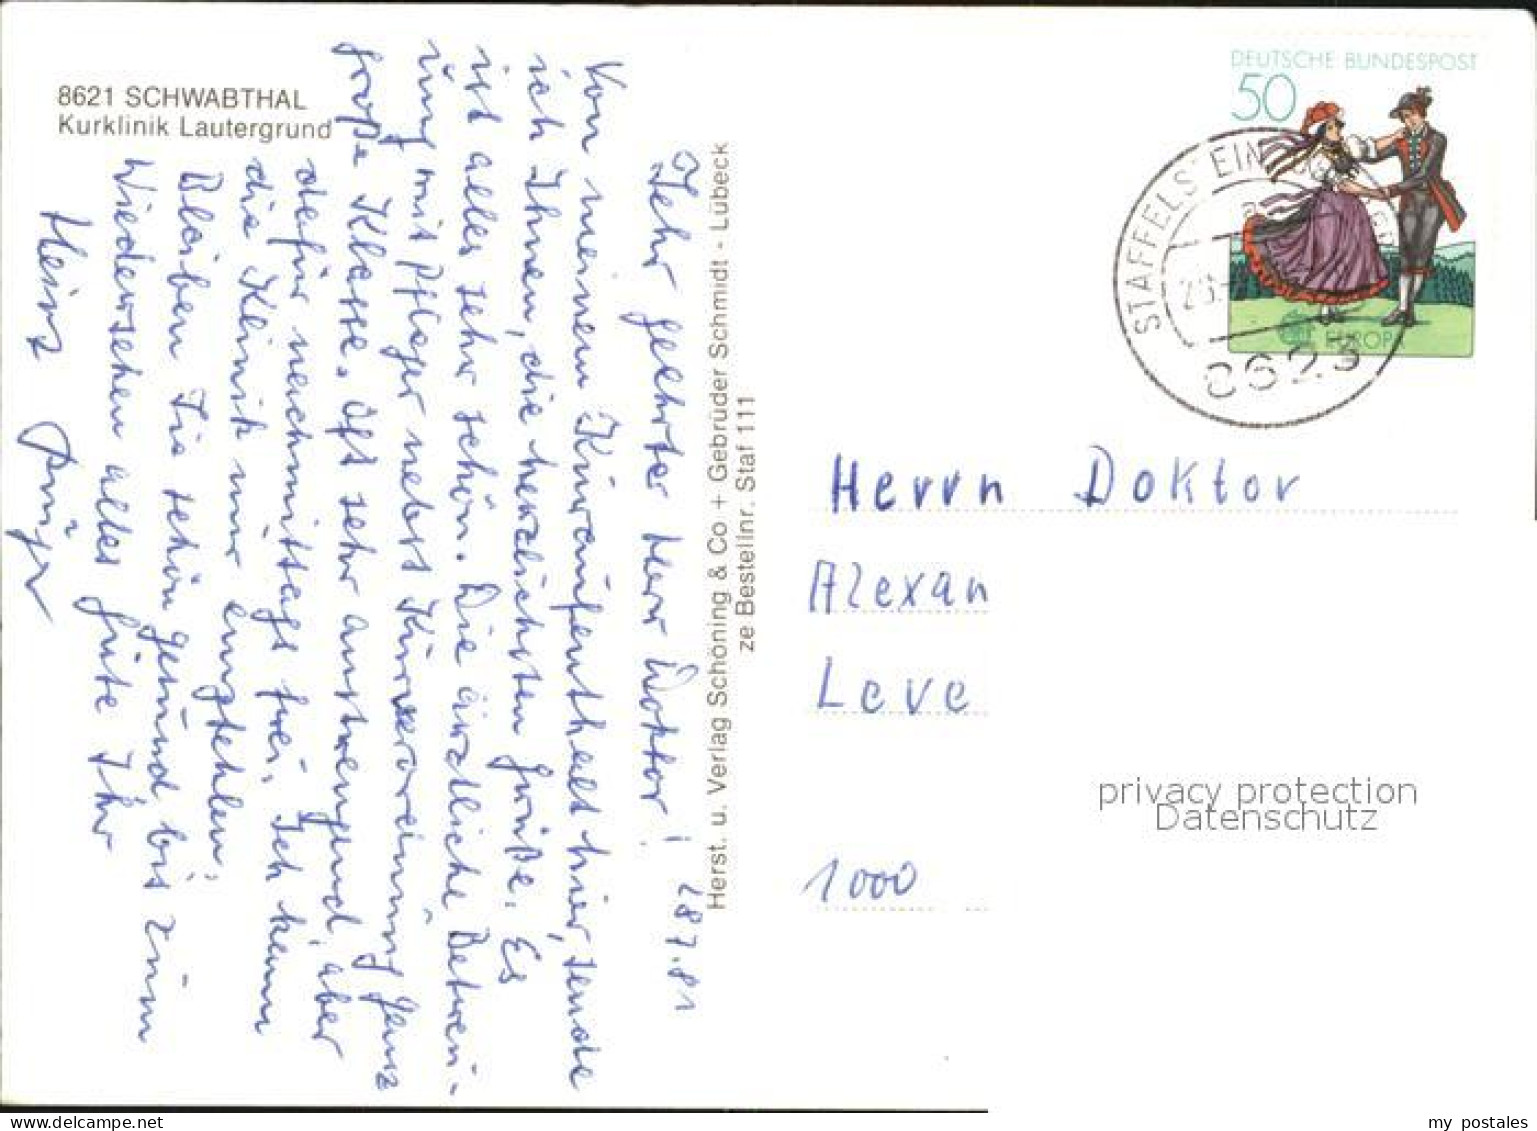 8621 SCHWABTHAL
Kurklinik Lautergrund
28.7.81
Sehr geehrter Herr Doktor!
Von meinem Kuraufenthalt hier, sende
ich Ihnen, die herzlichsten Grüße. Es
ist alles sehr schön. Die ärztliche Betreu-
ung mit Pfleger nebst Kurverordnung ganz
große Klasse. Oft sehr anstrengend, aber
dafür nachmittags frei. Ich kann
die Klinik nur empfehlen.
Bleiben Sie schön gesund bis zum
Wiedersehen alles Gute Ihr
Heinz
Herst. u. Verlag Schöning & Co + Gebrüder Schmidt - Lübeck
ze Bestellnr. Staf 111
DEUTSCHE BUNDESPOST
50
EUROPA
STAFFELSTEIN
8623
Herrn Doktor
Alexan
Leve
1000
privacy protection
Datenschutz
my postales